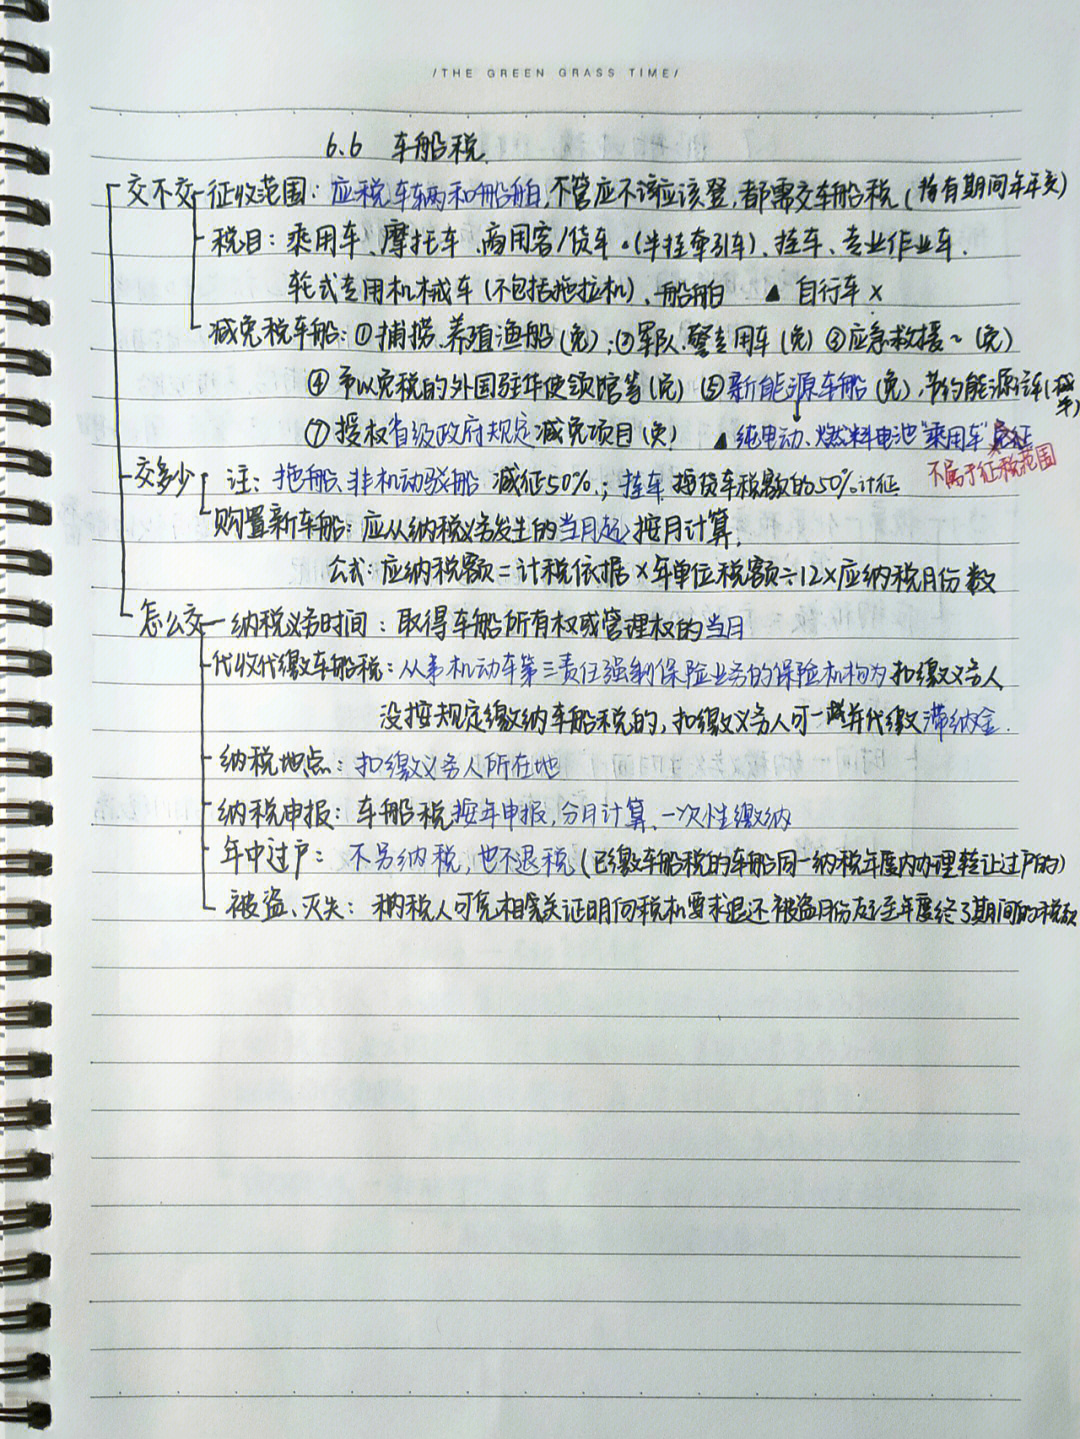 /THE GREEN GRASS TIME/
6.6 车船税
交不交 征收范围：应税车辆和船舶，不管应不该应该登，都需交车船税（持有期间年年交）
税目：乘用车、摩托车、商用客/货车·（半挂牵引车）、挂车、专业作业车、
轮式专用机械车（不包括拖拉机）、船舶 ▲ 自行车 ×
减免税车船：①捕捞、养殖渔船（免）；②军队、警专用车（免）③应急救援~（免）
④予以免税的外国驻华使领馆等（免）⑤新能源车船（免），节约能源（减半）
⑦授权省级政府规定减免项目（免） ▲纯电动、燃料电池“乘用车”
不属于征税范围
交多少 注：拖船、非机动驳船 减征50%；挂车 按货车税额的50%计征
购置新车船：应从纳税义务发生的当月起 按月计算.
公式：应纳税额=计税依据×年单位税额÷12×应纳税月份数
怎么交 纳税义务时间：取得车船所有权或管理权的当月
代收代缴车船税：从事机动车第三责任强制保险业务的保险机构为扣缴义务人
没按规定缴纳车船税的，扣缴义务人可一并代缴滞纳金.
纳税地点：扣缴义务人所在地
纳税申报：车船税按年申报，分月计算，一次性缴纳
年中过户：不另纳税，也不退税（已缴车船税的车船同一纳税年度内办理转让过户的）
被盗、灭失：纳税人可凭相关证明向税机要求退还被盗月份起至年度终了期间的税款